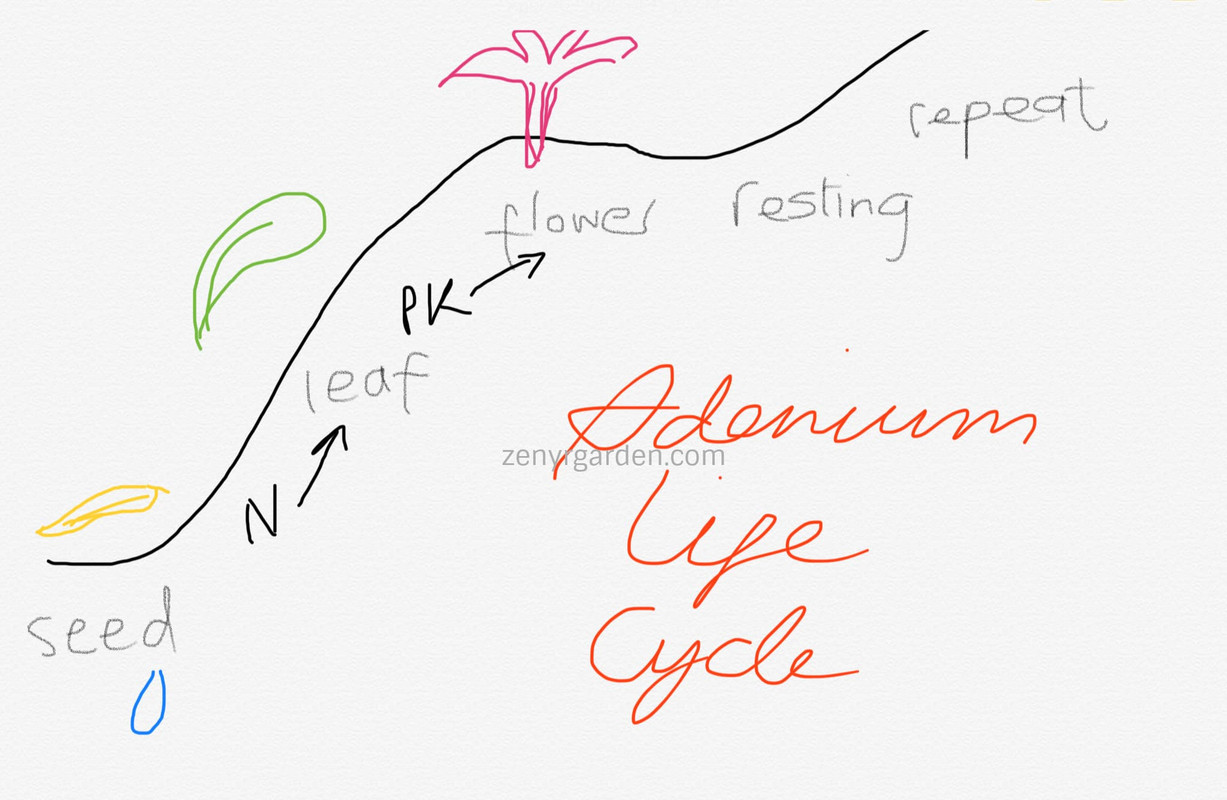 repeat
flower
resting
PK
leaf
Adenium
zenyrgarden.com
N
Life
seed
Cycle